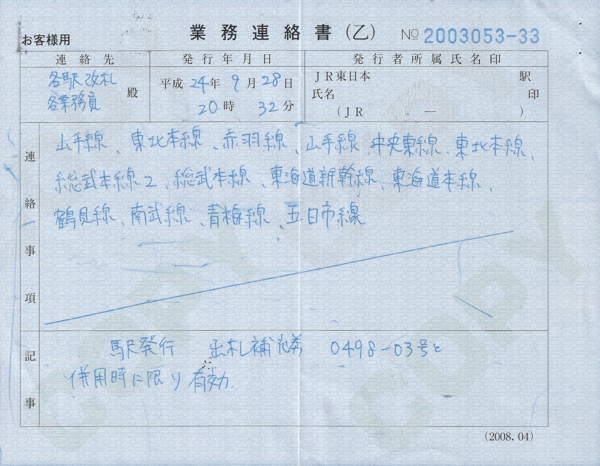 お客様用
業務連絡書(乙) No 2003053-33
連絡先 発行年月日 発行者所属氏名印
各駅改札
各業務員 殿
平成 24年 9月 28日
20時 32分
JR東日本 駅
氏名 印
(JR . ー )
連絡事項
山手線、東北本線、赤羽線、山手線、中央東線、東北本線、
総武本線2、総武本線、東海道新幹線、東海道本線、
鶴見線、南武線、青梅線、五日市線
記事
駅発行 出札補充券 0498-03号と
併用時に限り有効
COPY
COPY
(2008.04)